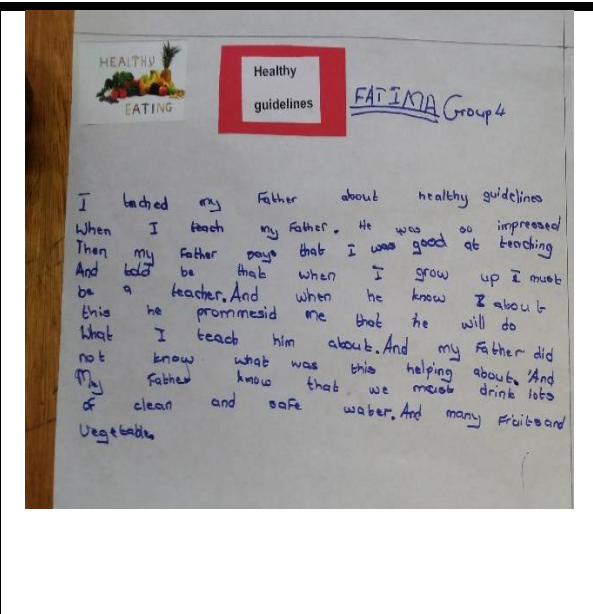 HEALTHY
EATING
Healthy
guidelines
FATIMA Group 4
I tached my Father about healthy guidelines
When I teach my Father. He was so impressed
Then my Father says that I was good at teaching
And told be that when I grow up I must
be a teacher. And when he know I about
this he prommesid me that he will do
What I teach him about. And my Father did
not know what was this helping about. And
My Father know that we must drink lots
of clean and safe water. And many Fruits and
Vegetables